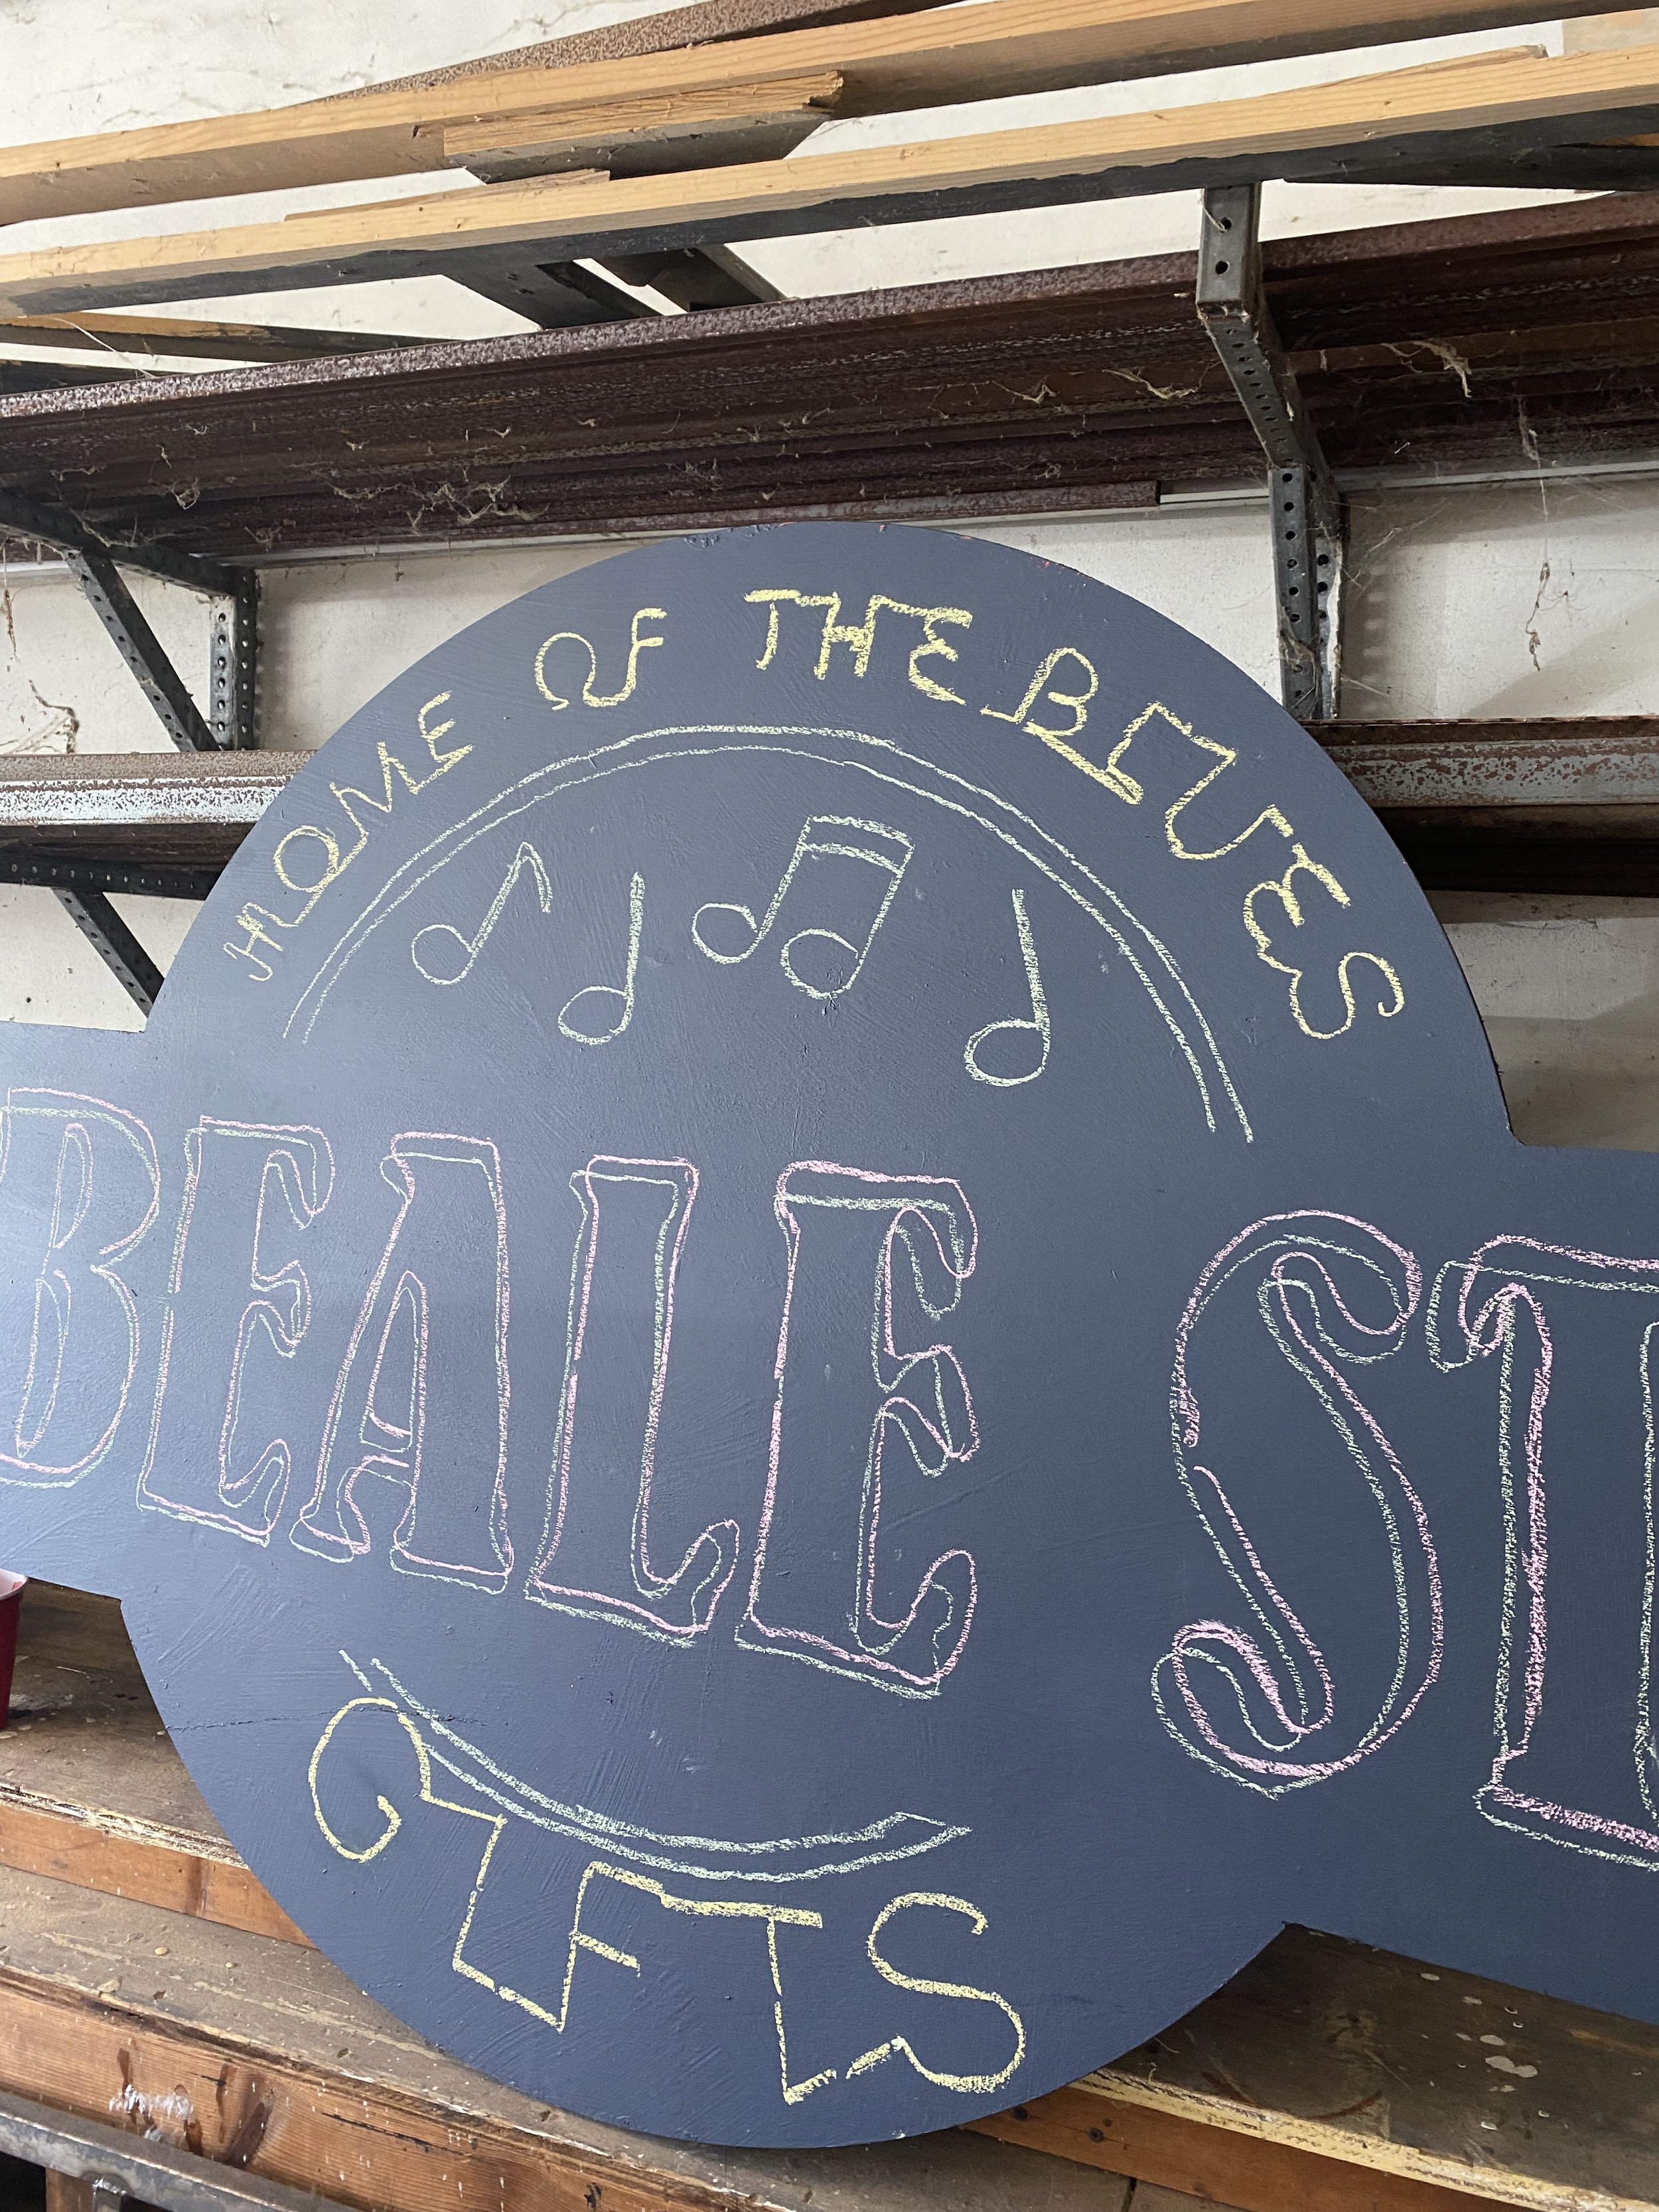 HOME OF THE BLUES
BEALE ST
GIFTS